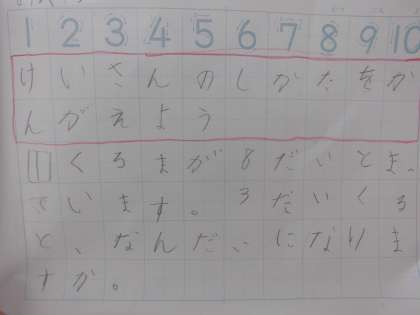 1 2 3 4 5 6 7 8 9 10
けいさんのしかたをか
んがえよう
1 くるまが8だいとま、
ています。3だいくる
と、なんだいになりま
すか。